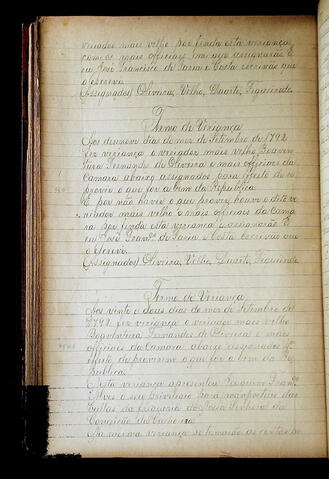 vriador mais velho por finda esta vriança
com os mais officiais em que assignarão E
eu José Francisco de Faria e Costa escrivão que
o escrevi
(Assignados) Oliveira, Velho, Duarte, Figueiredo
Termo de Vriança
Aos desnove dias do mes de Setembro de 1792
fes vriança o vriador mais velho Boaven
tura Fernandes de Oliveira e mais officiais da
Camara abaixo assignados para efeito de se
prover o que for a bem da Republica.
E por não haver o que prover houve o dito ve
riador mais velho e mais officiais da Cama
ra por finda esta vriança e assignarão E
eu José Francº de Faria e Costa escrivão que
o escrevi.
(Assignados) Oliveira, Velho, Duarte, Figueiredo
Termo de Vriança
Aos vinte e dous dias do mes de Setembro de
1792 fes vriança o vriador mais velho
Boaventura Fernandes de Oliveira e mais
officiais da Camara abaixo assignados
efeito de proverem o que for a bem da Re
publica.
Nesta vriança apresentou Joaquim
Alves o seu para
da freguezia de Nossa Senhora da
Conceição da Cachoeira
Na mesma vriança se tomarão as contas